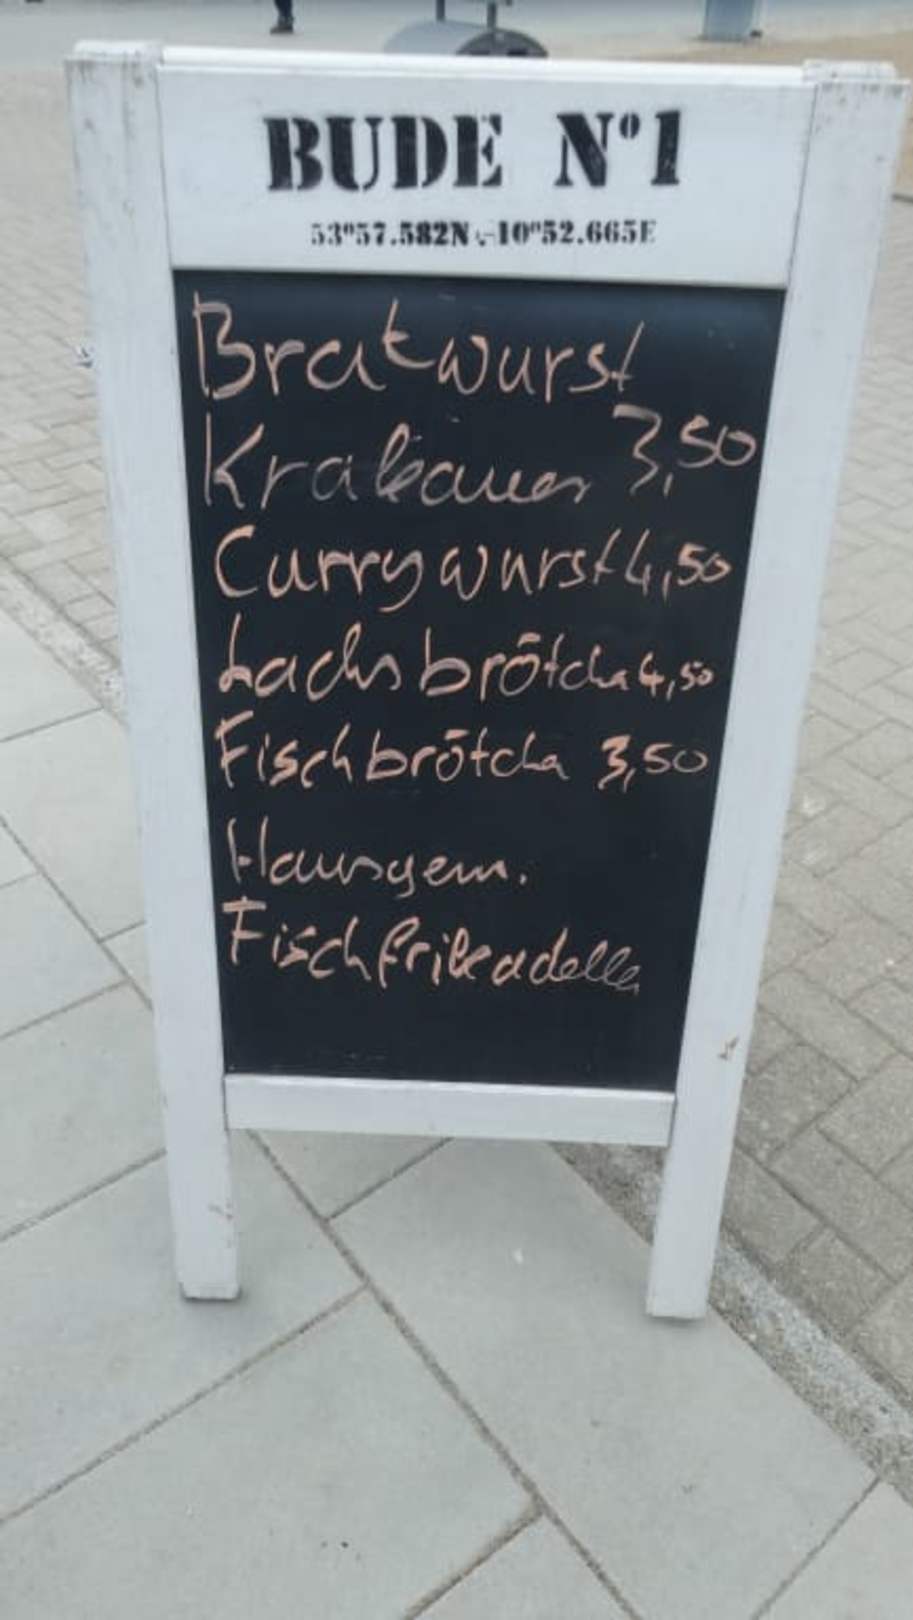 BUDE N°1
53°57.582N - 10°52.665E
Bratwurst
Krakauer 3,50
Currywurst 4,50
Lachsbrötchen 4,50
Fischbrötchen 3,50
Hausgem.
Fischfrikadellen